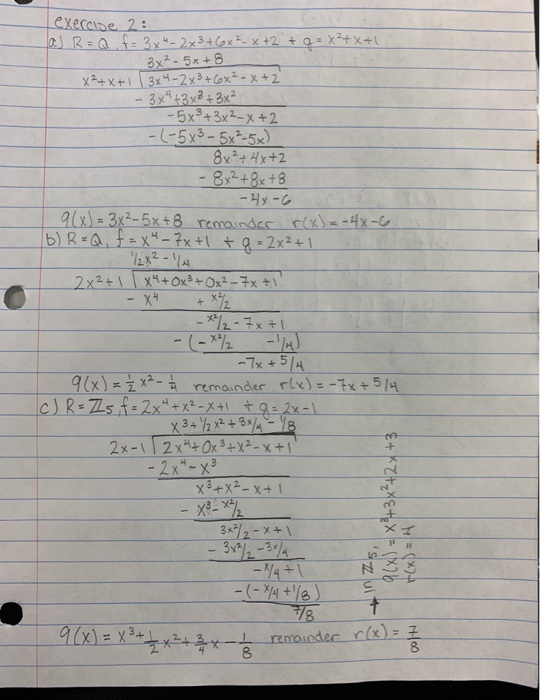 exercise 2:
a) R=Q, f=3x⁴-2x³+6x²-x+2 + g=x²+x+1
3x²-5x+8
x²+x+1 | 3x⁴-2x³+6x²-x+2
- 3x⁴+3x³+3x²
-5x³+3x²-x+2
-(-5x³-5x²-5x)
8x²+4x+2
- 8x²+8x+8
-4x-6
q(x)=3x²-5x+8 remainder r(x)=-4x-6
b) R=Q, f=x⁴-7x+1 + g=2x²+1
1/2x²-1/4
2x²+1 | x⁴+0x³+0x²-7x+1
- x⁴ + x²/2
-x²/2-7x+1
-(-x²/2 -1/4)
-7x+5/4
q(x)=1/2x²-1/4 remainder r(x)=-7x+5/4
c) R=ℤ₅, f=2x⁴+x²-x+1 + g=2x-1
x³+1/2x²+3x/4-1/8
2x-1 | 2x⁴+0x³+x²-x+1
- 2x⁴-x³
x³+x²-x+1
- x³-x²/2
3x²/2-x+1
- 3x²/2-3x/4
-x/4+1
-(-x/4+1/8)
7/8
q(x)=x³+1/2x²+3/4x-1/8 remainder r(x)=7/8
→ in ℤ₅,
q(x)=x³+3x²+2x+3
r(x)=4